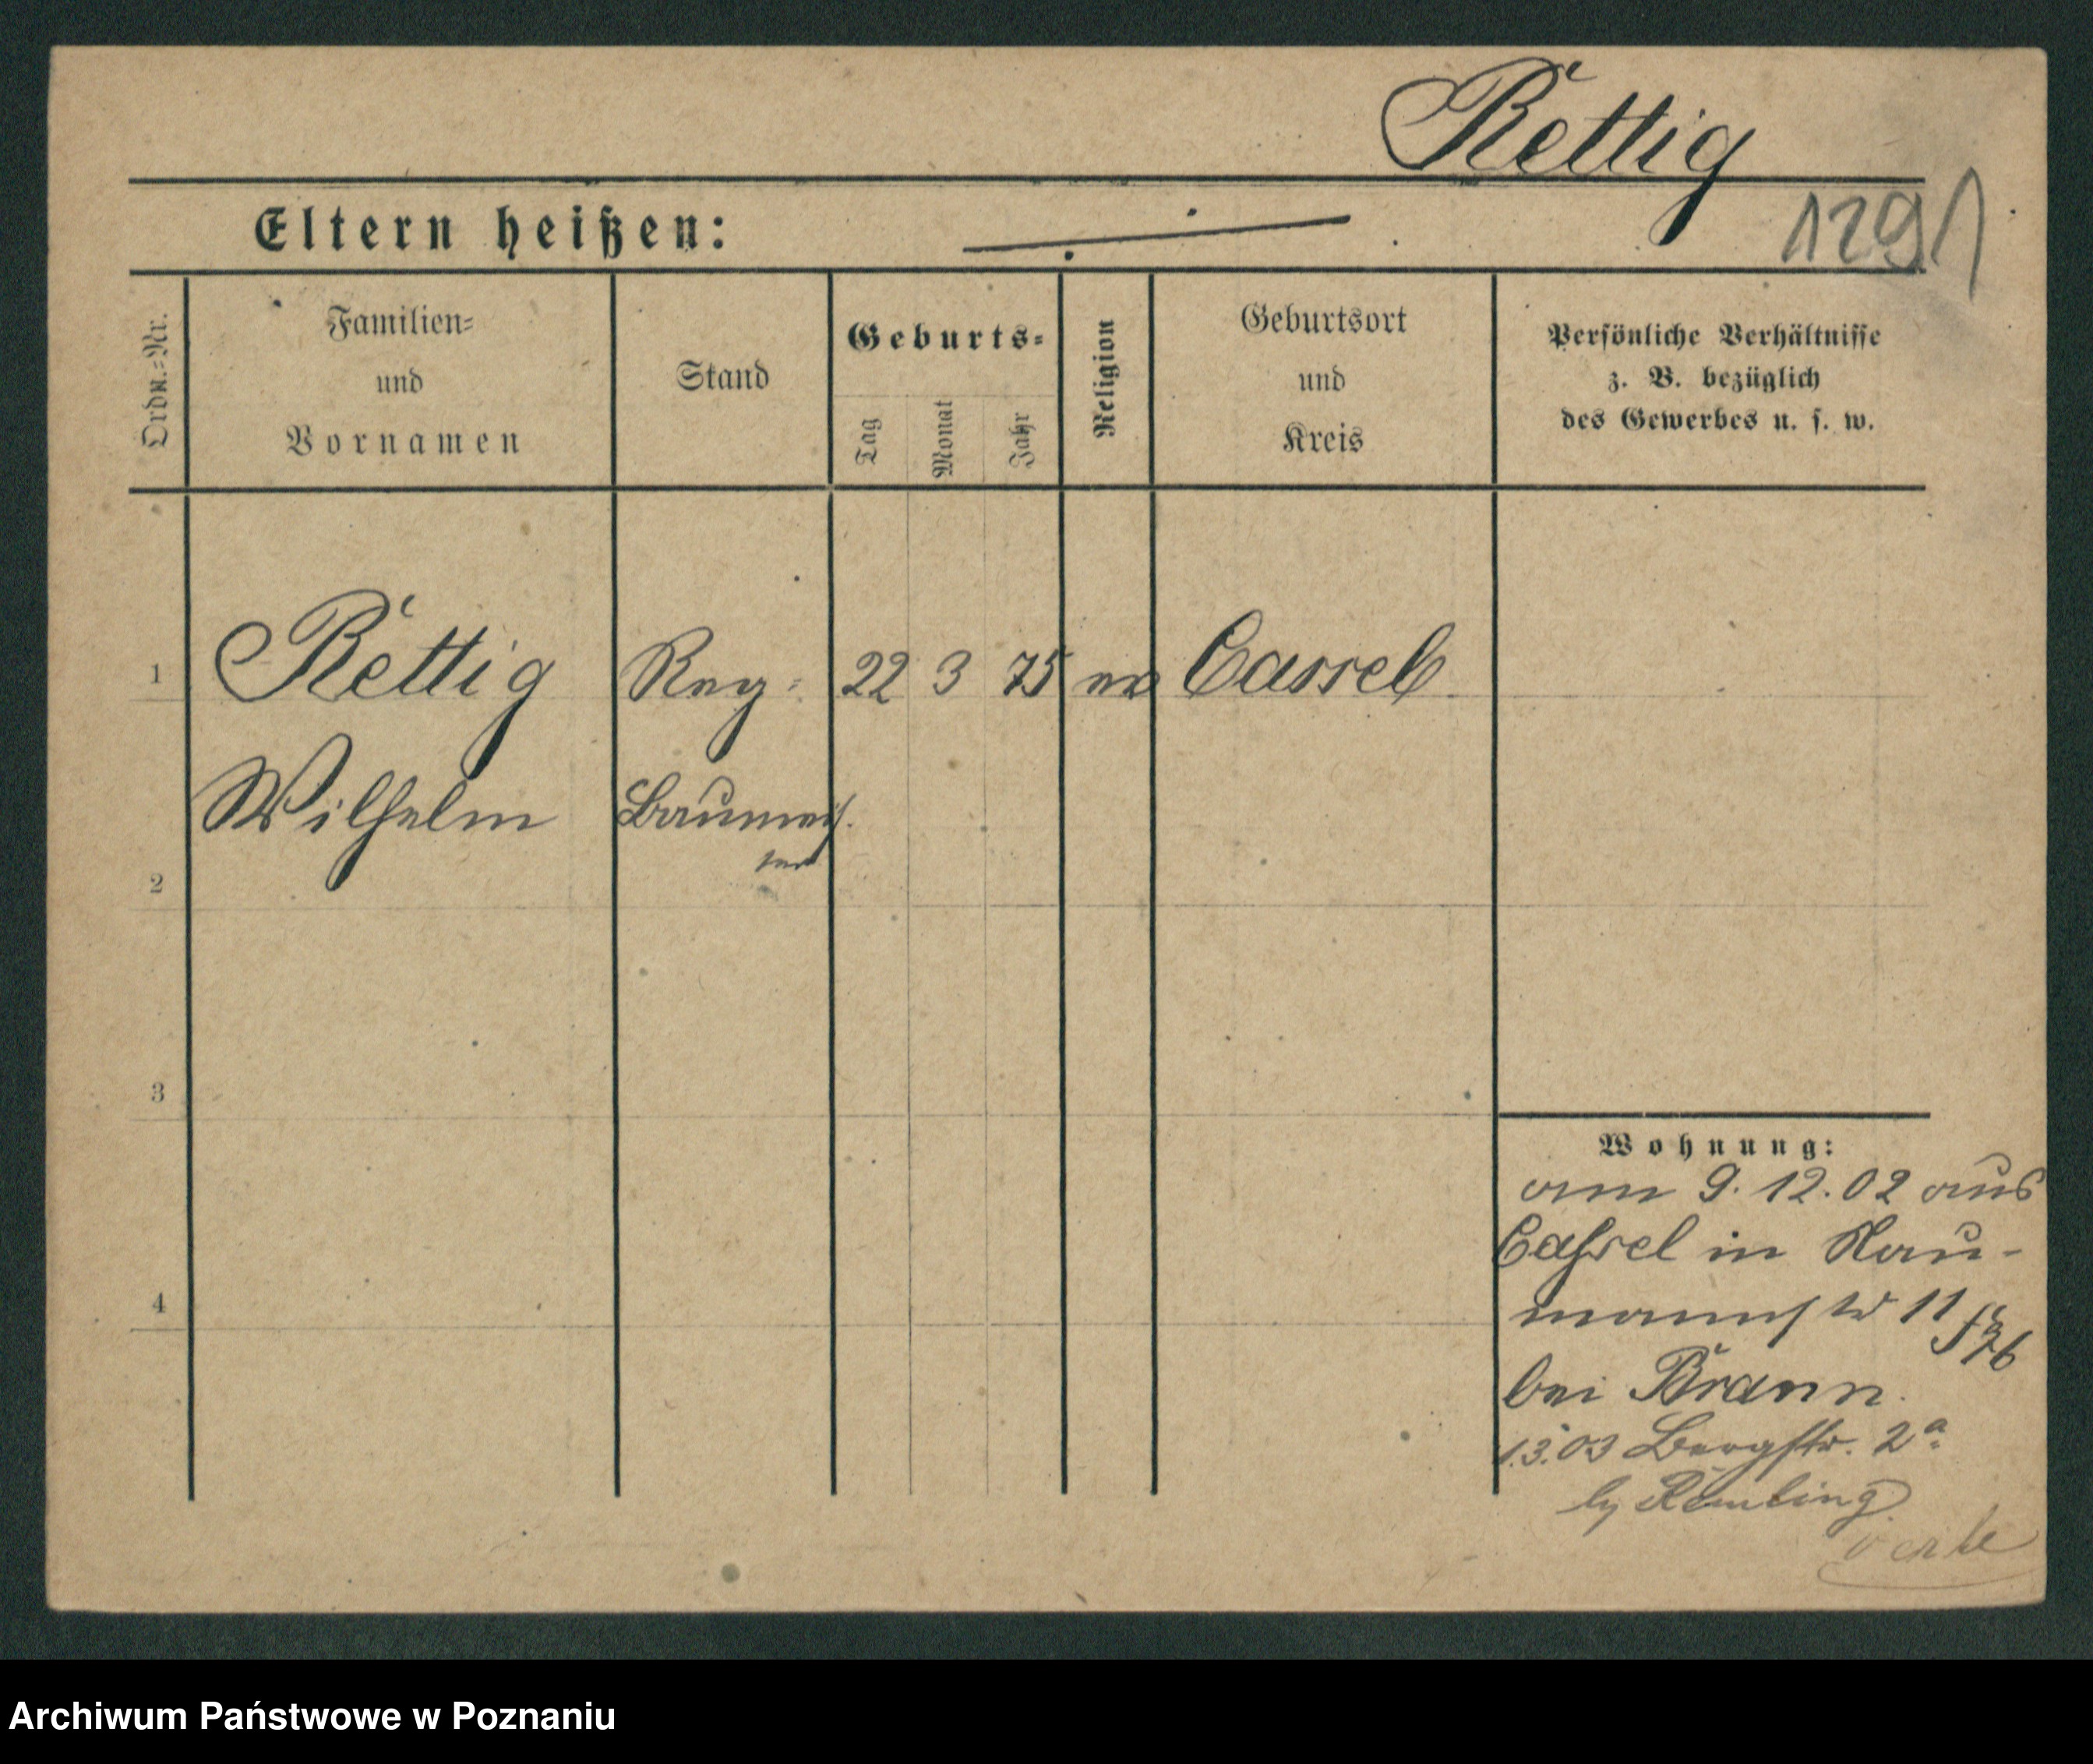 Rettig
1291
Eltern heißen:
Ordn.-Nr.
Familien-
und
Vornamen
Stand
Geburts-
Tag
Monat
Jahr
Religion
Geburtsort
und
Kreis
Persönliche Verhältnisse
z. B. bezüglich
des Gewerbes u. s. w.
1
Rettig Reg- 22 3 75 ev Cassel
Wilhelm Baumeis.
ter
2
3
4
Wohnung:
am 9.12.02 aus
Cassel in Nau-
mannstr 11
bei Brann.
1.3.03 Bergstr. 2a.
by Remling
Archiwum Państwowe w Poznaniu